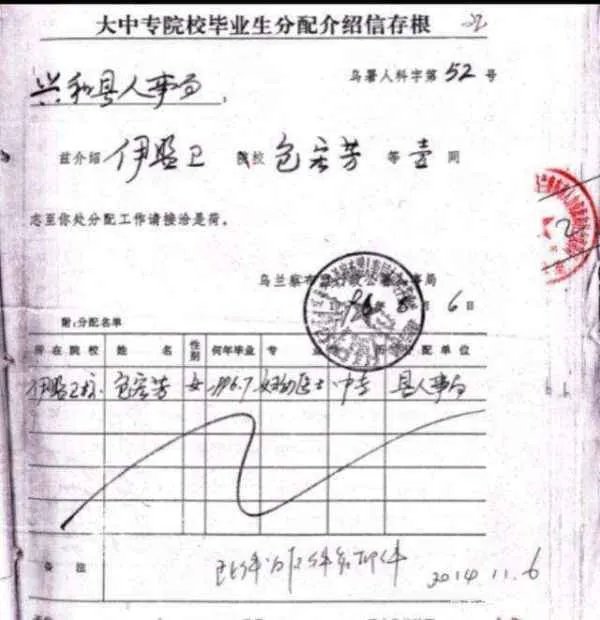 大中专院校毕业生分配介绍信存根
乌署人科字第52号
兴和县人事局：
兹介绍 伊盟卫 院校 包宏芳 等壹同
志至你处分配工作请接洽是荷。
乌兰察布盟行政公署人事局
6日
附：分配名单
所在院校 姓名 性别 何年毕业 专业 分配单位
伊盟卫校 包宏芳 女 1996.7 妇幼医士 中专 县人事局
备注
2014.11.6